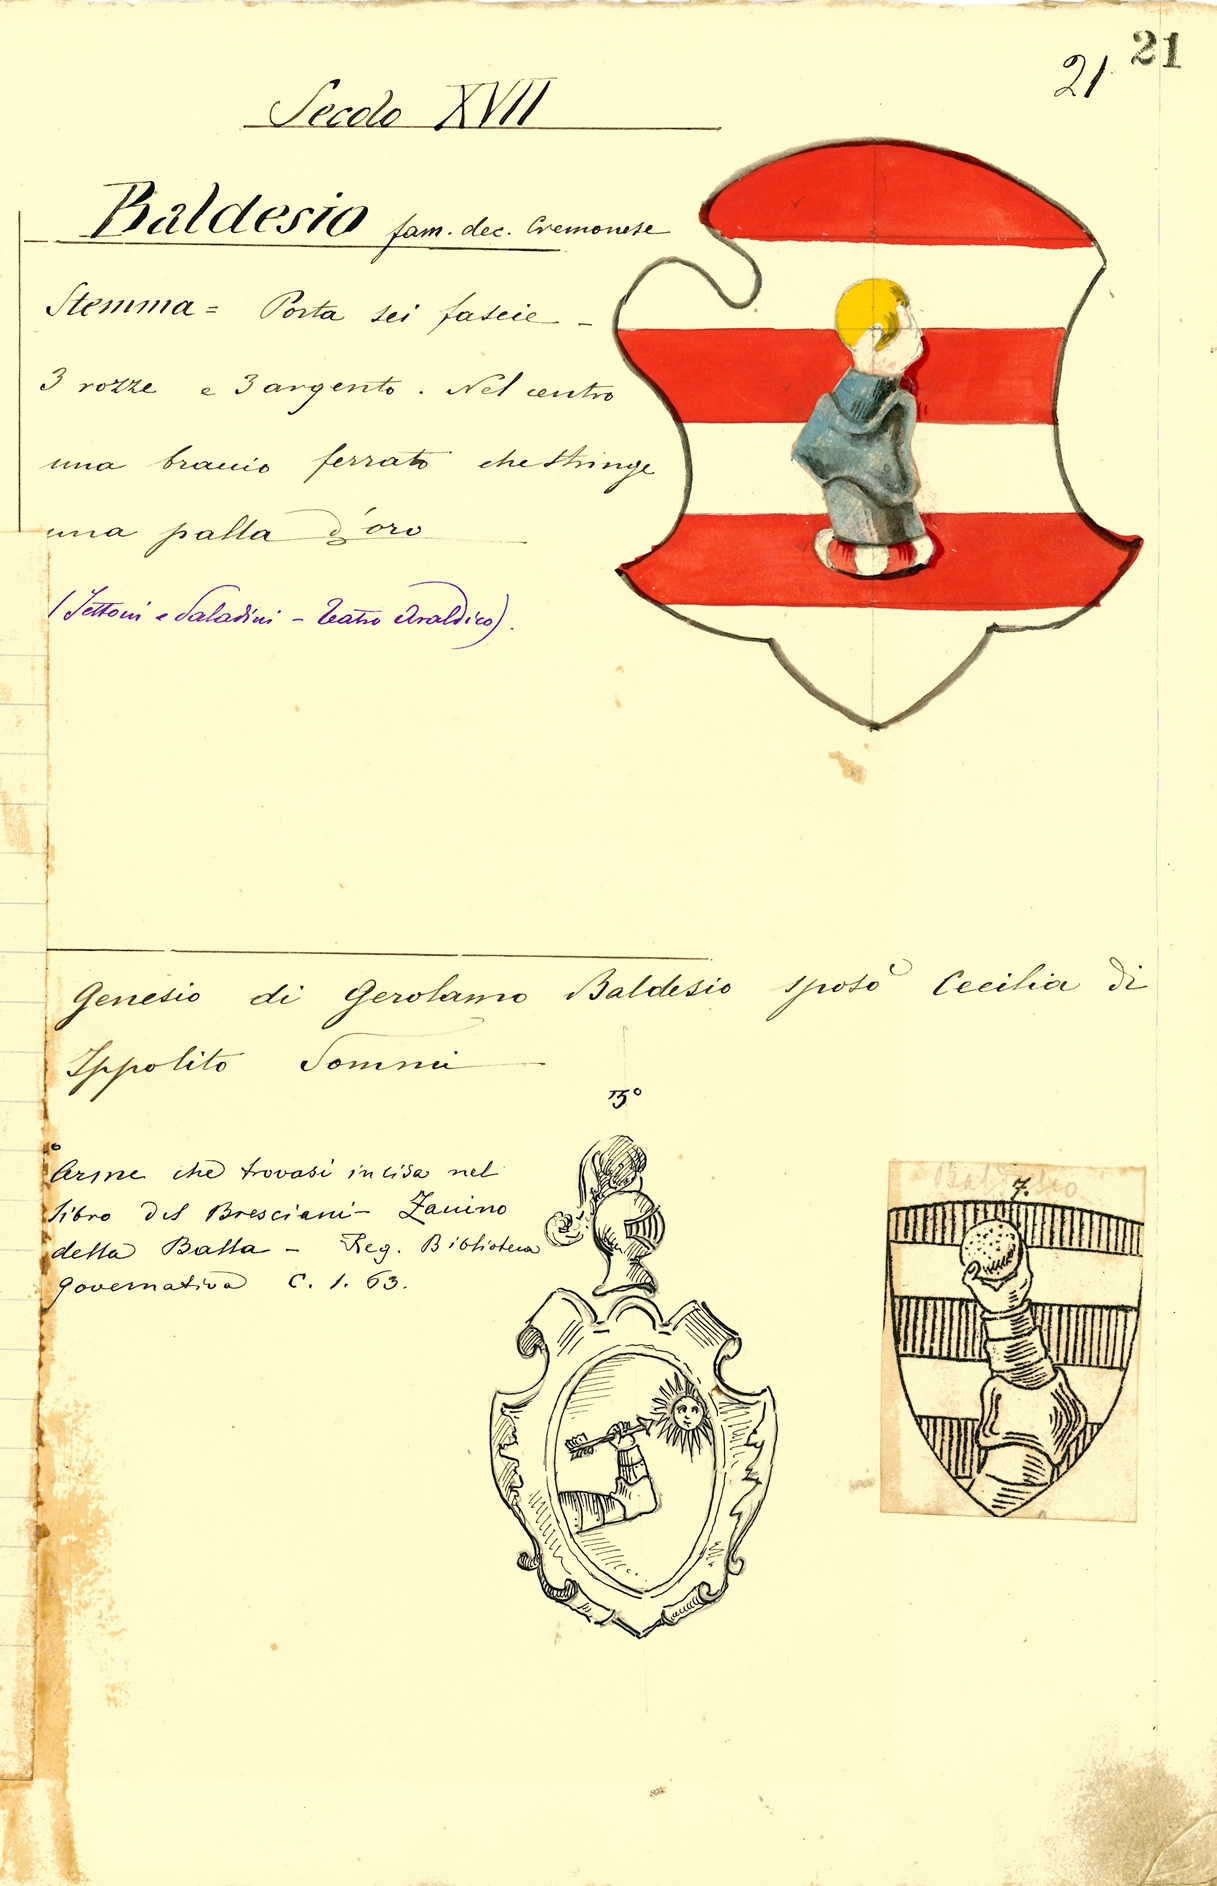 21
21
Secolo XVII
Baldesio fam. dec. Cremonese
Stemma = Porta sei fascie -
3 rozze e 3 argento. Nel centro
una braccio ferrato che stringe
una palla d'oro
(Tettoni e Saladini - Teatro Araldico).
Genesio di Gerolamo Baldesio sposò Cecilia di
Ippolito Sommi
Arme che trovasi incisa nel
libro del Bresciani - Zanino
della Balla - Reg. Biblioteca
governativa C. 1. 63.
Baldesio
7.